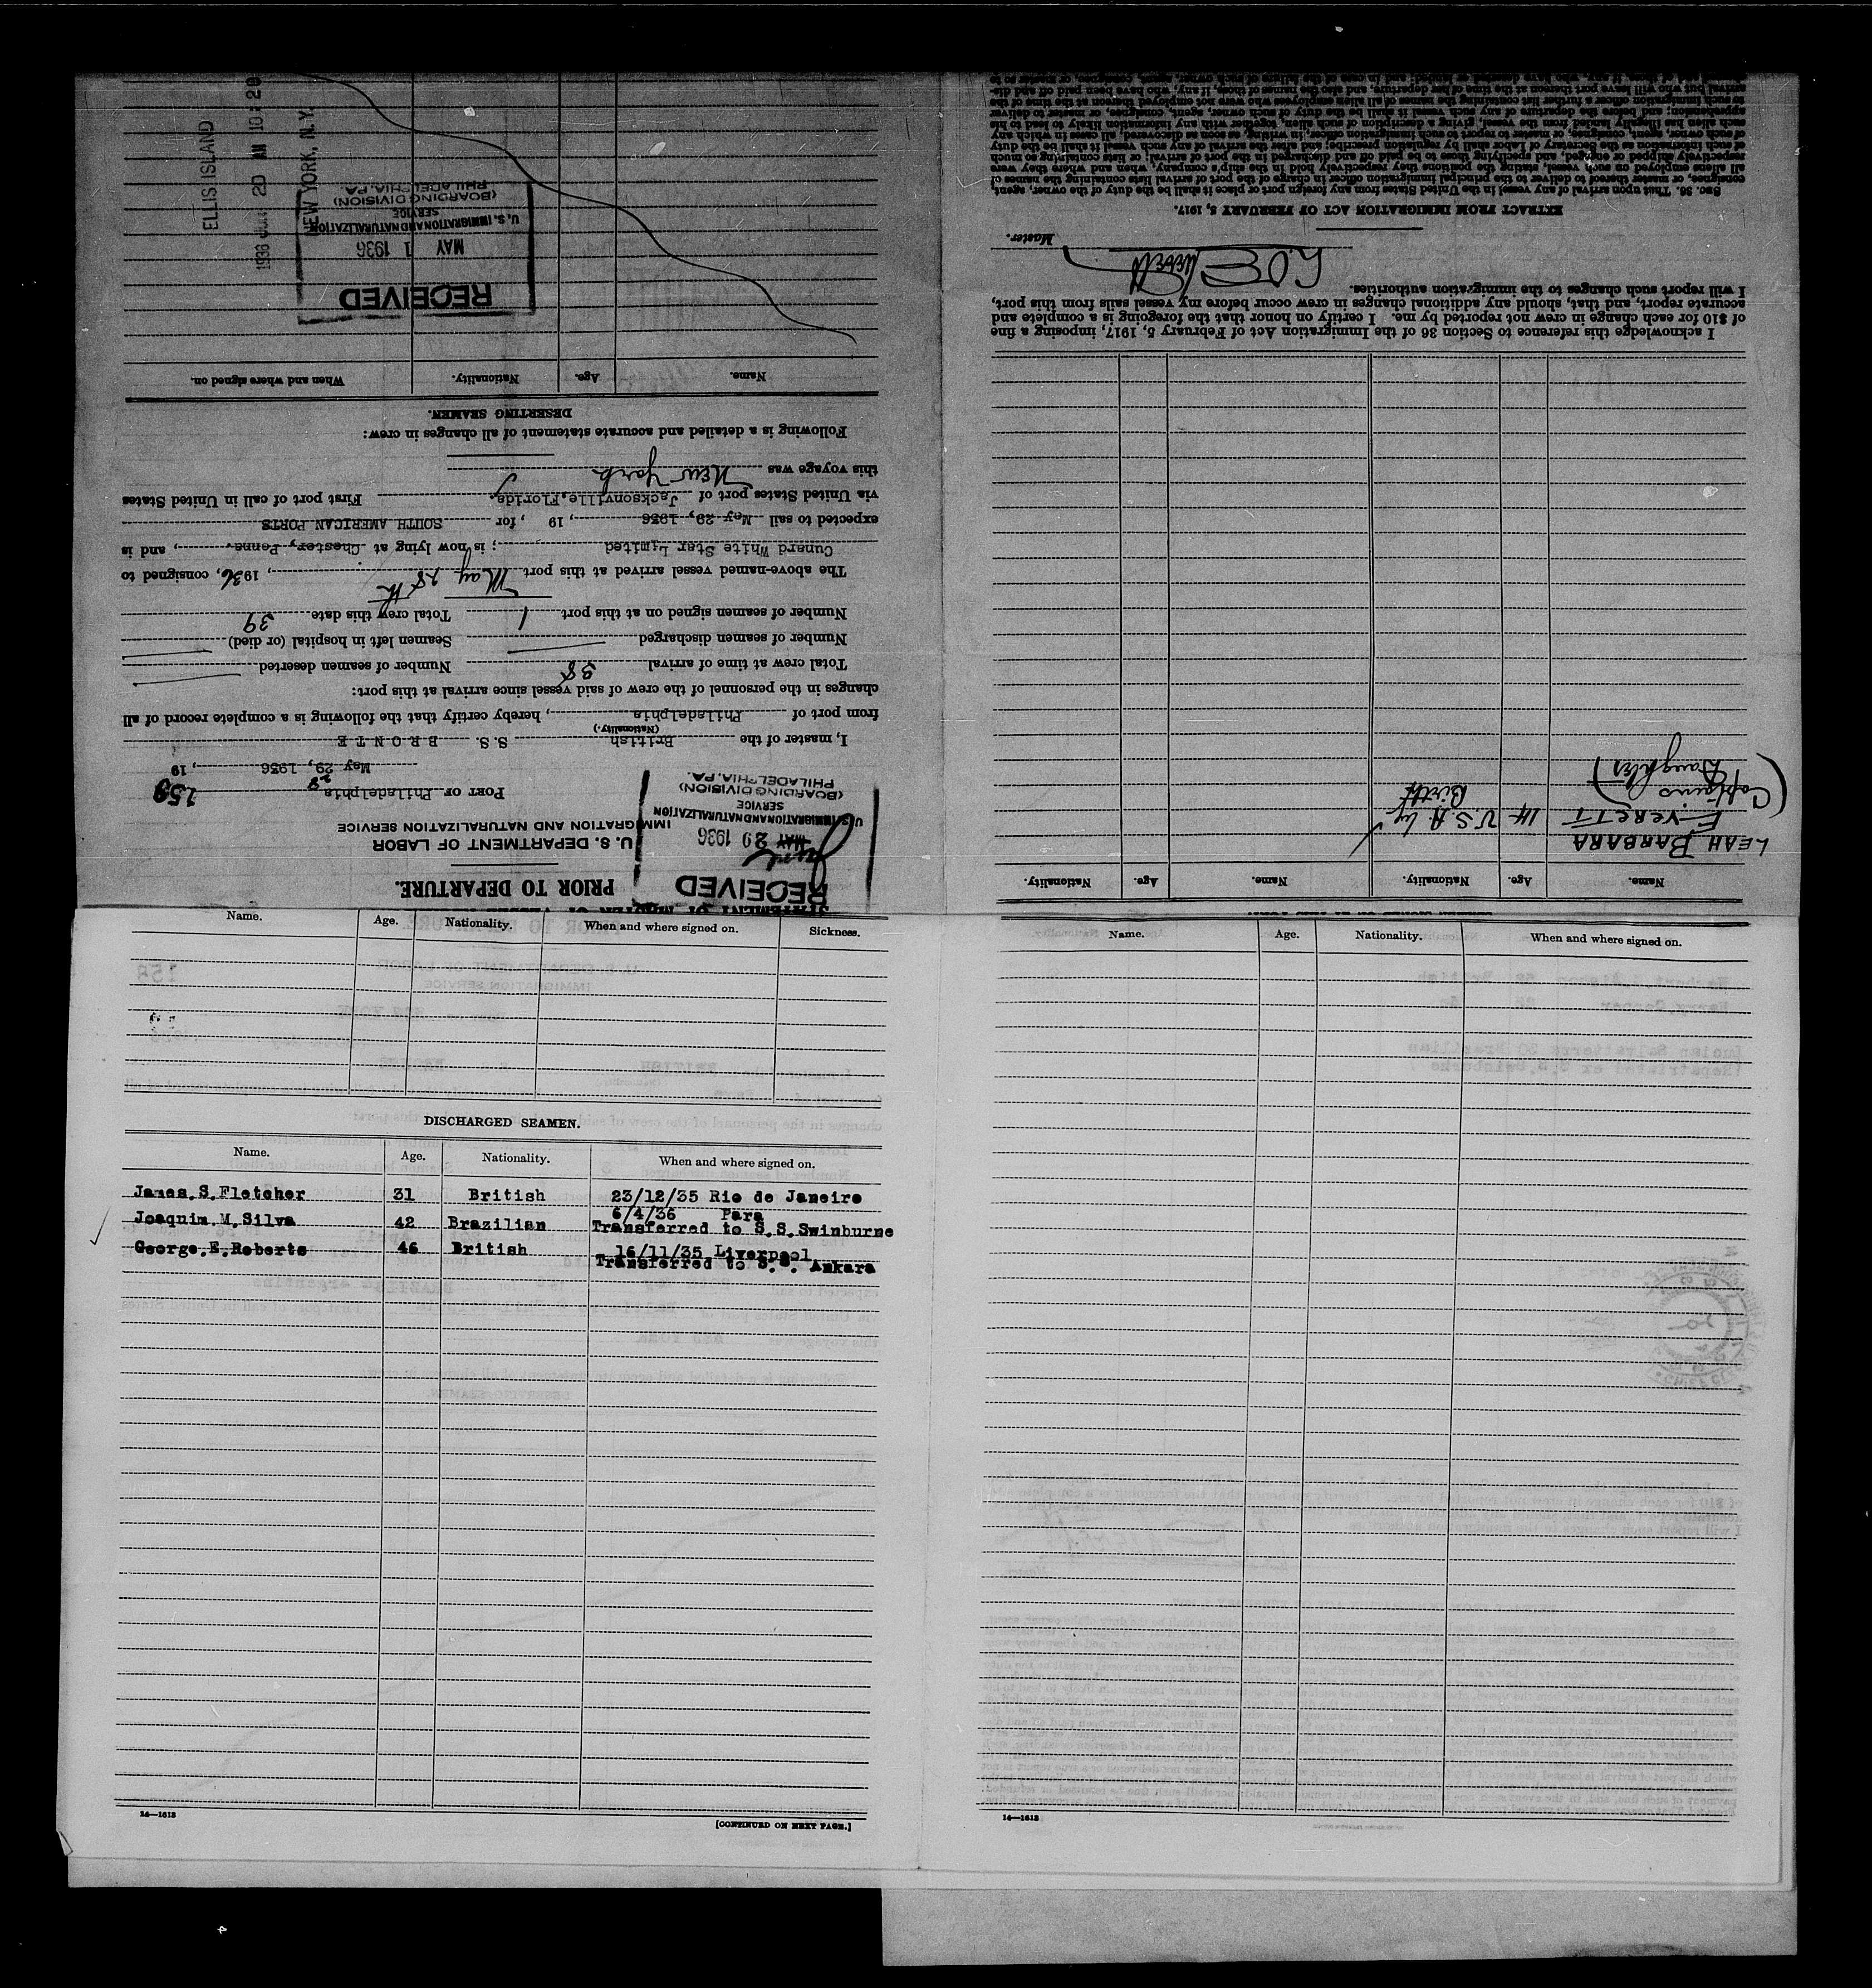 STATEMENT OF MASTER OF VESSEL
PRIOR TO DEPARTURE.
RECEIVED
June
MAY 29 1936
U.S. IMMIGRATION AND NATURALIZATION
SERVICE
(BOARDING DIVISION)
PHILADELPHIA, PA.
U. S. DEPARTMENT OF LABOR
IMMIGRATION AND NATURALIZATION SERVICE
PORT OF Philadelphia
159
May 29, 1936, 19
I, master of the British S.S. BRONTE
(Nationality.)
from port of Philadelphia, hereby certify that the following is a complete record of all
changes in the personnel of the crew of said vessel since arrival at this port:
Total crew at time of arrival 38 Number of seamen deserted
Number of seamen discharged Seamen left in hospital (or died)
Number of seamen signed on at this port 1 Total crew this date 39
The above-named vessel arrived at this port May 28th, 1936, consigned to
Cunard White Star Limited; is now lying at Chester, Penna., and is
expected to sail May 29, 1936, 19 , for SOUTH AMERICAN PORTS
via United States port of Jacksonville, Florida. First port of call in United States
this voyage was New York
Following is a detailed and accurate statement of all changes in crew:
DESERTING SEAMEN.
Name. Age. Nationality. When and where signed on.
RECEIVED
MAY 1 1936
U. S. IMMIGRATION AND NATURALIZATION
SERVICE
(BOARDING DIVISION)
PHILADELPHIA, PA.
ELLIS ISLAND
1936 JUN 20 AM 10:20
NEW YORK, N.Y.
Name. Age. Nationality. Name. Age. Nationality.
LEAH BARBARA
EVERETT 14 U.S.A by
Birth
(Captains
Daughter)
I acknowledge this reference to Section 36 of the Immigration Act of February 5, 1917, imposing a fine
of $10 for each change in crew not reported by me. I certify on honor that the foregoing is a complete and
accurate report, and that, should any additional changes in crew occur before my vessel sails from this port,
I will report such changes to the immigration authorities.
Master.
EXTRACT FROM IMMIGRATION ACT OF FEBRUARY 5, 1917.
SEC. 36. That upon arrival of any vessel in the United States from any foreign port or place it shall be the duty of the owner, agent,
consignee, or master thereof to deliver to the principal immigration officer in charge of the port of arrival lists containing the names of
all aliens employed on such vessel, stating the positions they respectively hold in the ship's company, when and where they were
respectively shipped or engaged, and specifying those to be paid off and discharged in the port of arrival; or lists containing so much
of such information as the Secretary of Labor shall by regulation prescribe; and after the arrival of any such vessel it shall be the duty
of such owner, agent, consignee, or master to report to such immigration officer, in writing, as soon as discovered, all cases in which any
such alien has illegally landed from the vessel, giving a description of such alien, together with any information likely to lead to his
apprehension; and before the departure of any such vessel it shall be the duty of such owner, agent, consignee, or master to deliver
to such immigration officer a further list containing the names of all alien employees who were not employed thereon at the time of the
arrival but who will leave port thereon at the time of her departure, and also the names of those, if any, who have been paid off and dis-
Name. Age. Nationality. When and where signed on. Sickness.
DISCHARGED SEAMEN.
Name. Age. Nationality. When and where signed on.
James.S.Fletcher 31 British 23/12/35 Rio de Janeiro
Joaquim.M.Silva 42 Brazilian 6/4/36 Para
Transferred to S.S.Swinburne
George.E.Roberts 46 British 16/11/35 Liverpool
Transferred to S.S. Ankara
14—1613
[CONTINUED ON NEXT PAGE.]
Name. Age. Nationality. When and where signed on.
14—1613